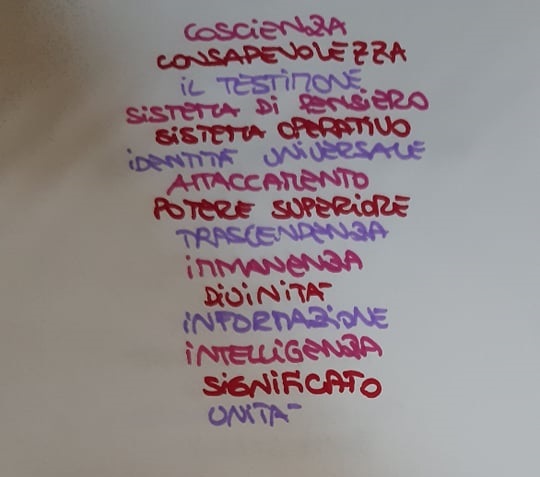 COSCIENZA
CONSAPEVOLEZZA
IL TESTIMONE
SISTEMA DI PENSIERO
SISTEMA OPERATIVO
IDENTITÀ UNIVERSALE
ATTACCAMENTO
POTERE SUPERIORE
TRASCENDENZA
IMMANENZA
DIVINITÀ
INFORMAZIONE
INTELLIGENZA
SIGNIFICATO
UNITÀ